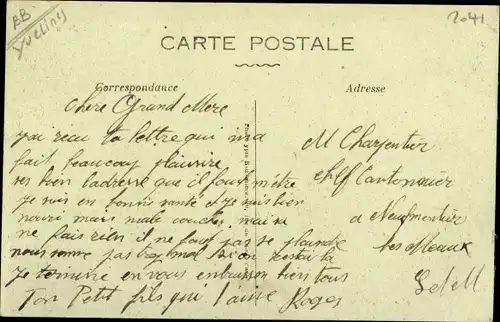 BB
Yvelines
2041
CARTE POSTALE
Correspondance
Adresse
chere Grand Mere
j'ai recu ta lettre qui m'a
fait beaucoup plaisire
bien l'adresse que il fault m'être
je suis en bonne santé et je suis bien
nouri mais male coucher mai sa
ne fais rien il ne faut pas se plaindre
nous somme pas trop mal si on restai la
je termine en vous embrassan bien tous
Ton Petit fils qui t'aime Roger
M Charpentier
chef Cantonnier
a Neufmontier
les Meaux
S et M